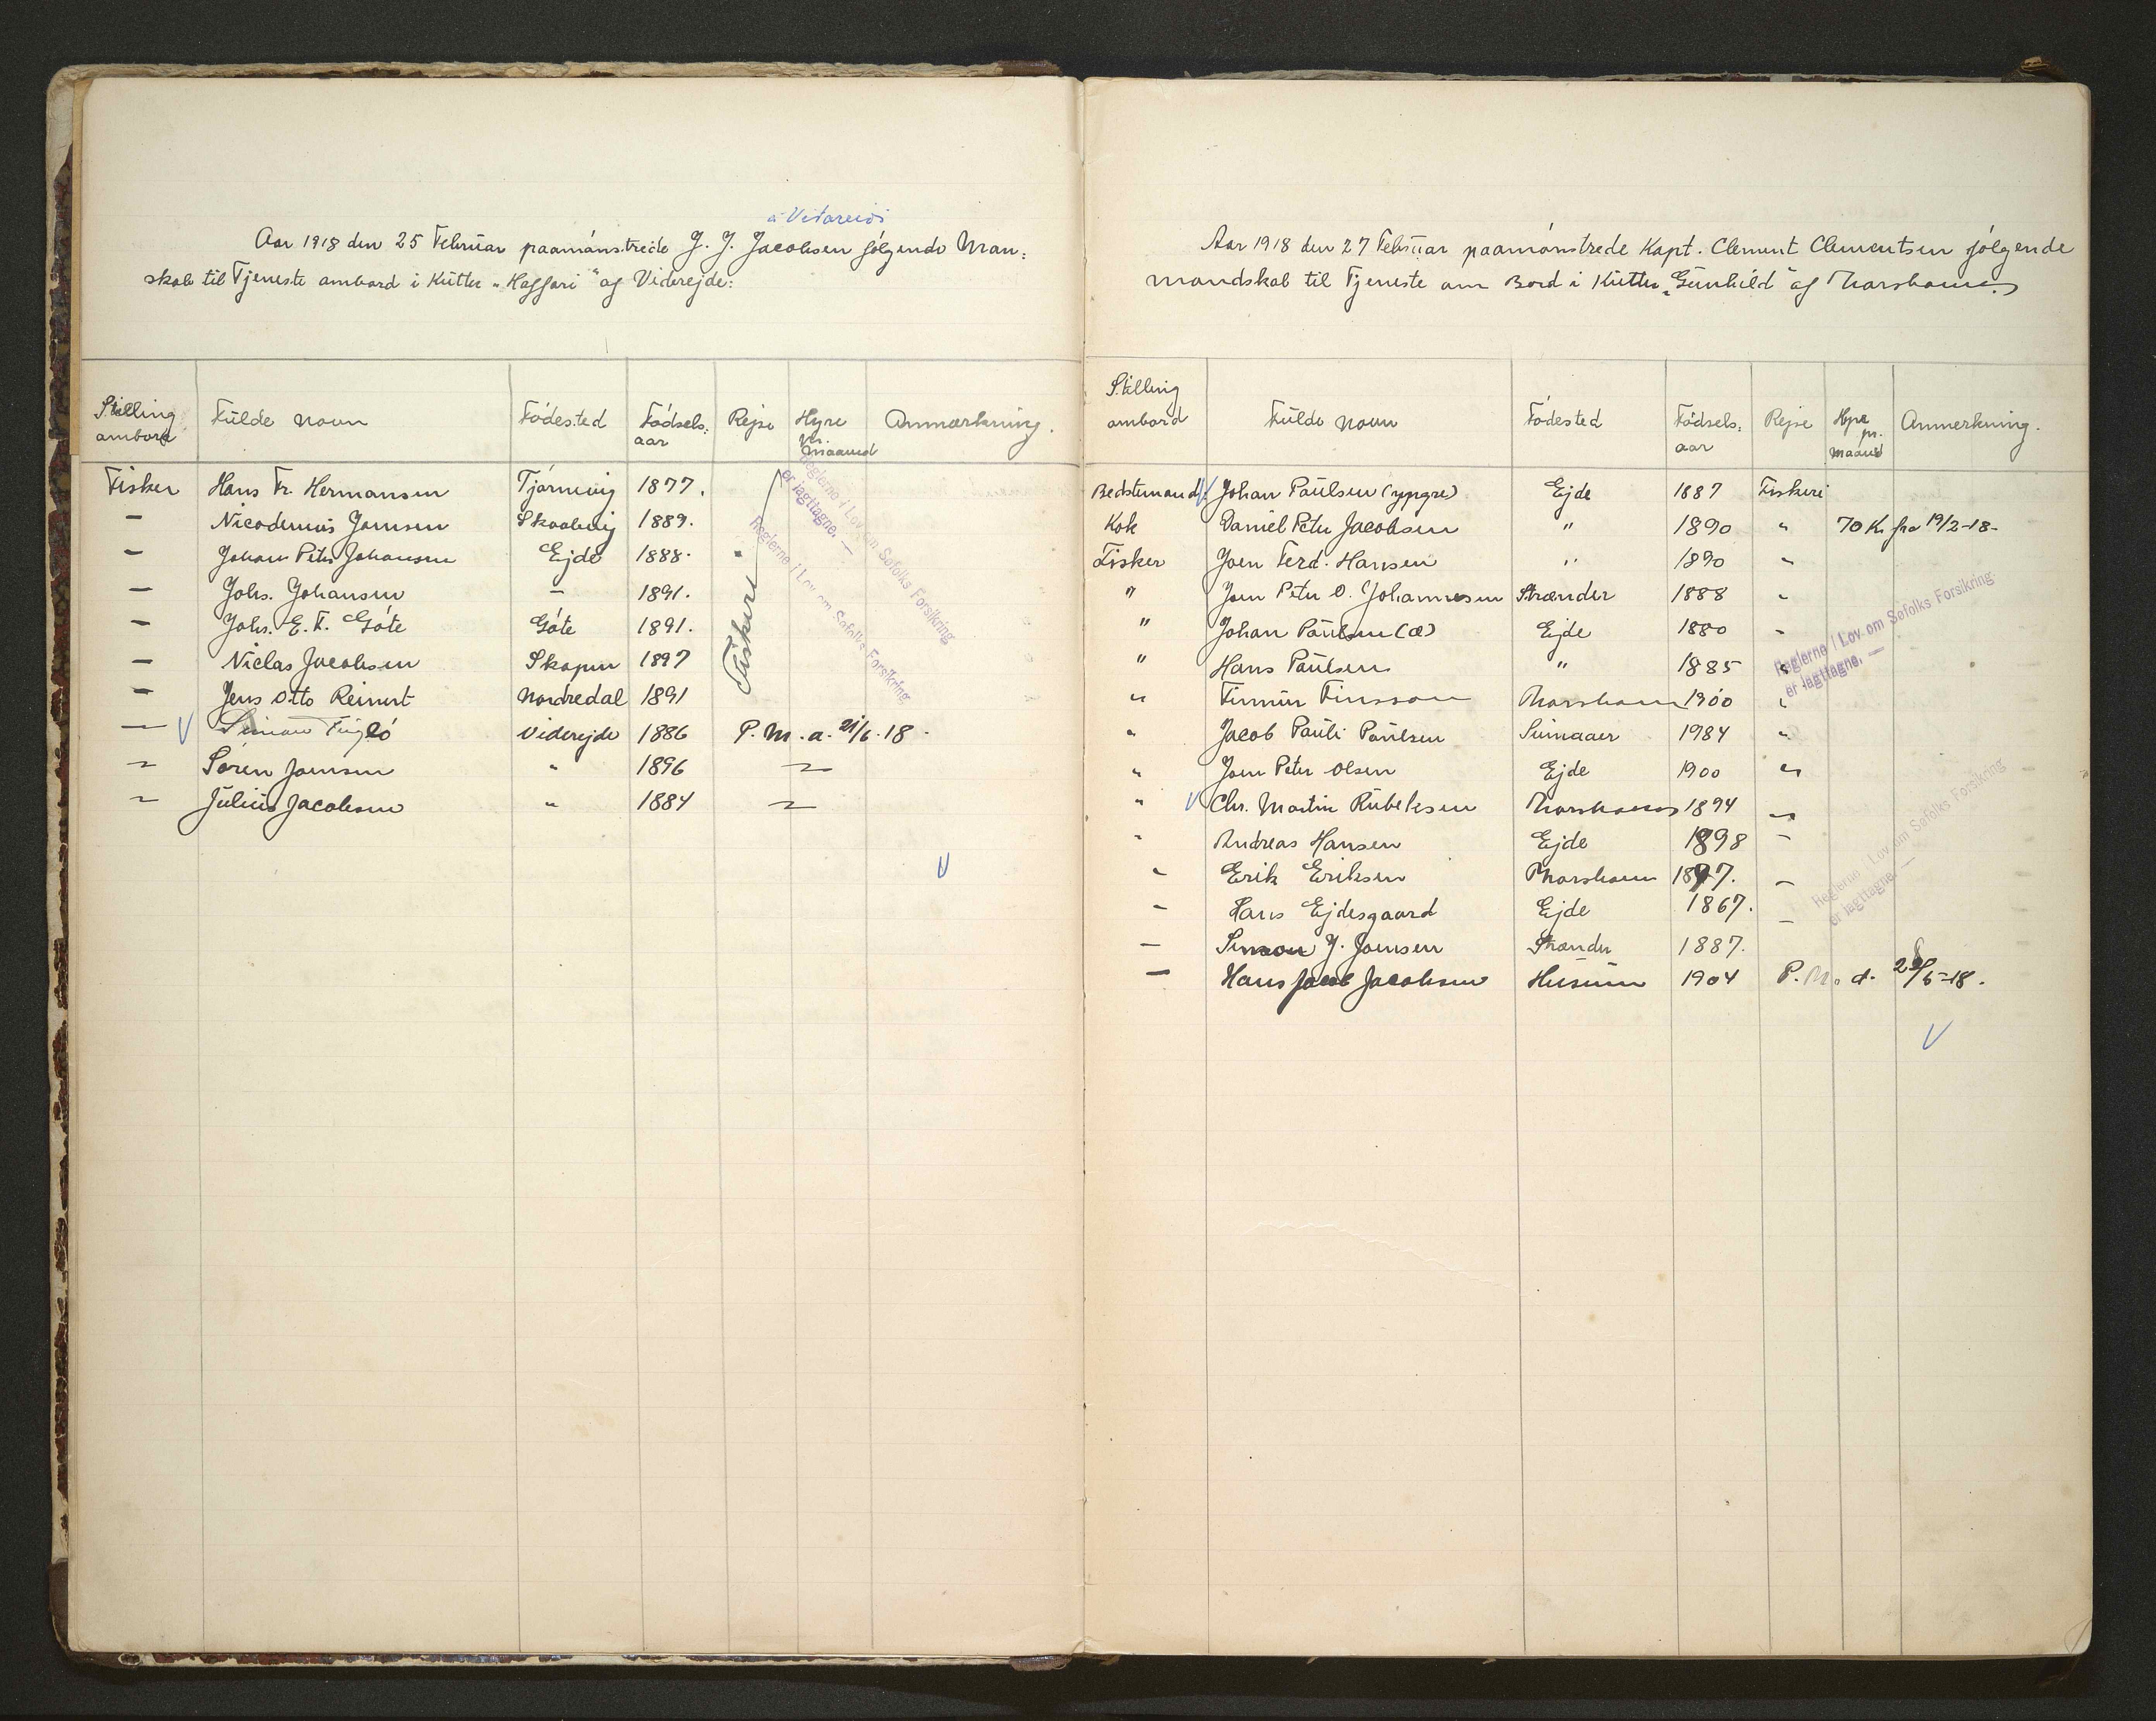 á Viðareiði
Aar 1918 den 25 Februar paamønstrede J. J. Jacobsen følgende Man=
skab til Tjeneste ombord i Kutter "Haffari" af Viderejde:
Stilling ombord Fulde Navn Fødested Fødsels= aar Rejse Hyre pr. Maaned Anmærkning.
Fisker Hans Fr. Hermansen Tjørnevig 1877. Fiskeri
— Nicodemus Joensen Skaalevig 1889.
— Johan Peter Johansen Ejde 1888. "
— Johs. Johansen — 1891.
— Johs. E. F. Gøte Gøte 1891.
— Niclas Jacobsen Skopen 1897
— Jens Otto Reinert Nordredal 1891
— Simon Fuglø Viderejde 1886 P. M. a. 21/6. 18.
" Søren Joensen " 1896 "
" Julius Jacobsen " 1884 "
Reglerne i Lov om Søfolks Forsikring
er iagttagne. —
Reglerne i Lov om Søfolks Forsikring
Aar 1918 den 27 Februar paamønstrede Kapt. Clement Clementsen følgende
mandskab til Tjeneste om Bord i Kutter "Gunhild" af Thorshavn.
Stilling ombord Fulde Navn Fødested Fødsels= aar Rejse Hyre pr. Maaned Anmerkning.
Bedstemand Johan Poulsen (yngre) Ejde 1887 Fiskeri
Kok Daniel Peter Jacobsen " 1890 " 70 Kr. fra 19/2-18-
Fisker Joen Ferd. Hansen " 1890 "
" Joen Peter O. Johannesen Strænder 1888 "
" Johan Poulsen (æ) Ejde 1880 "
" Hans Poulsen " 1885 "
" Finnur Finsson Thorshavn 1900 "
" Jacob Pauli Poulsen Sumaaer 1984 "
" Joen Peter Olsen Ejde 1900 "
" Chr. Martin Rubeksen Thorshavn 1894 "
" Andreas Hansen Ejde 1898 "
" Erik Eriksen Thorshavn 1897. —
— Hans Ejdesgaard Ejde 1867. —
— Simon J. Joensen Strænder 1887.
— Hans Jacob Jacobsen Husum 1904 P. M. d. 28/6-18.
Reglerne i Lov om Søfolks Forsikring
er iagttagne. —
Reglerne i Lov om Søfolks Forsikring
er iagttagne. —